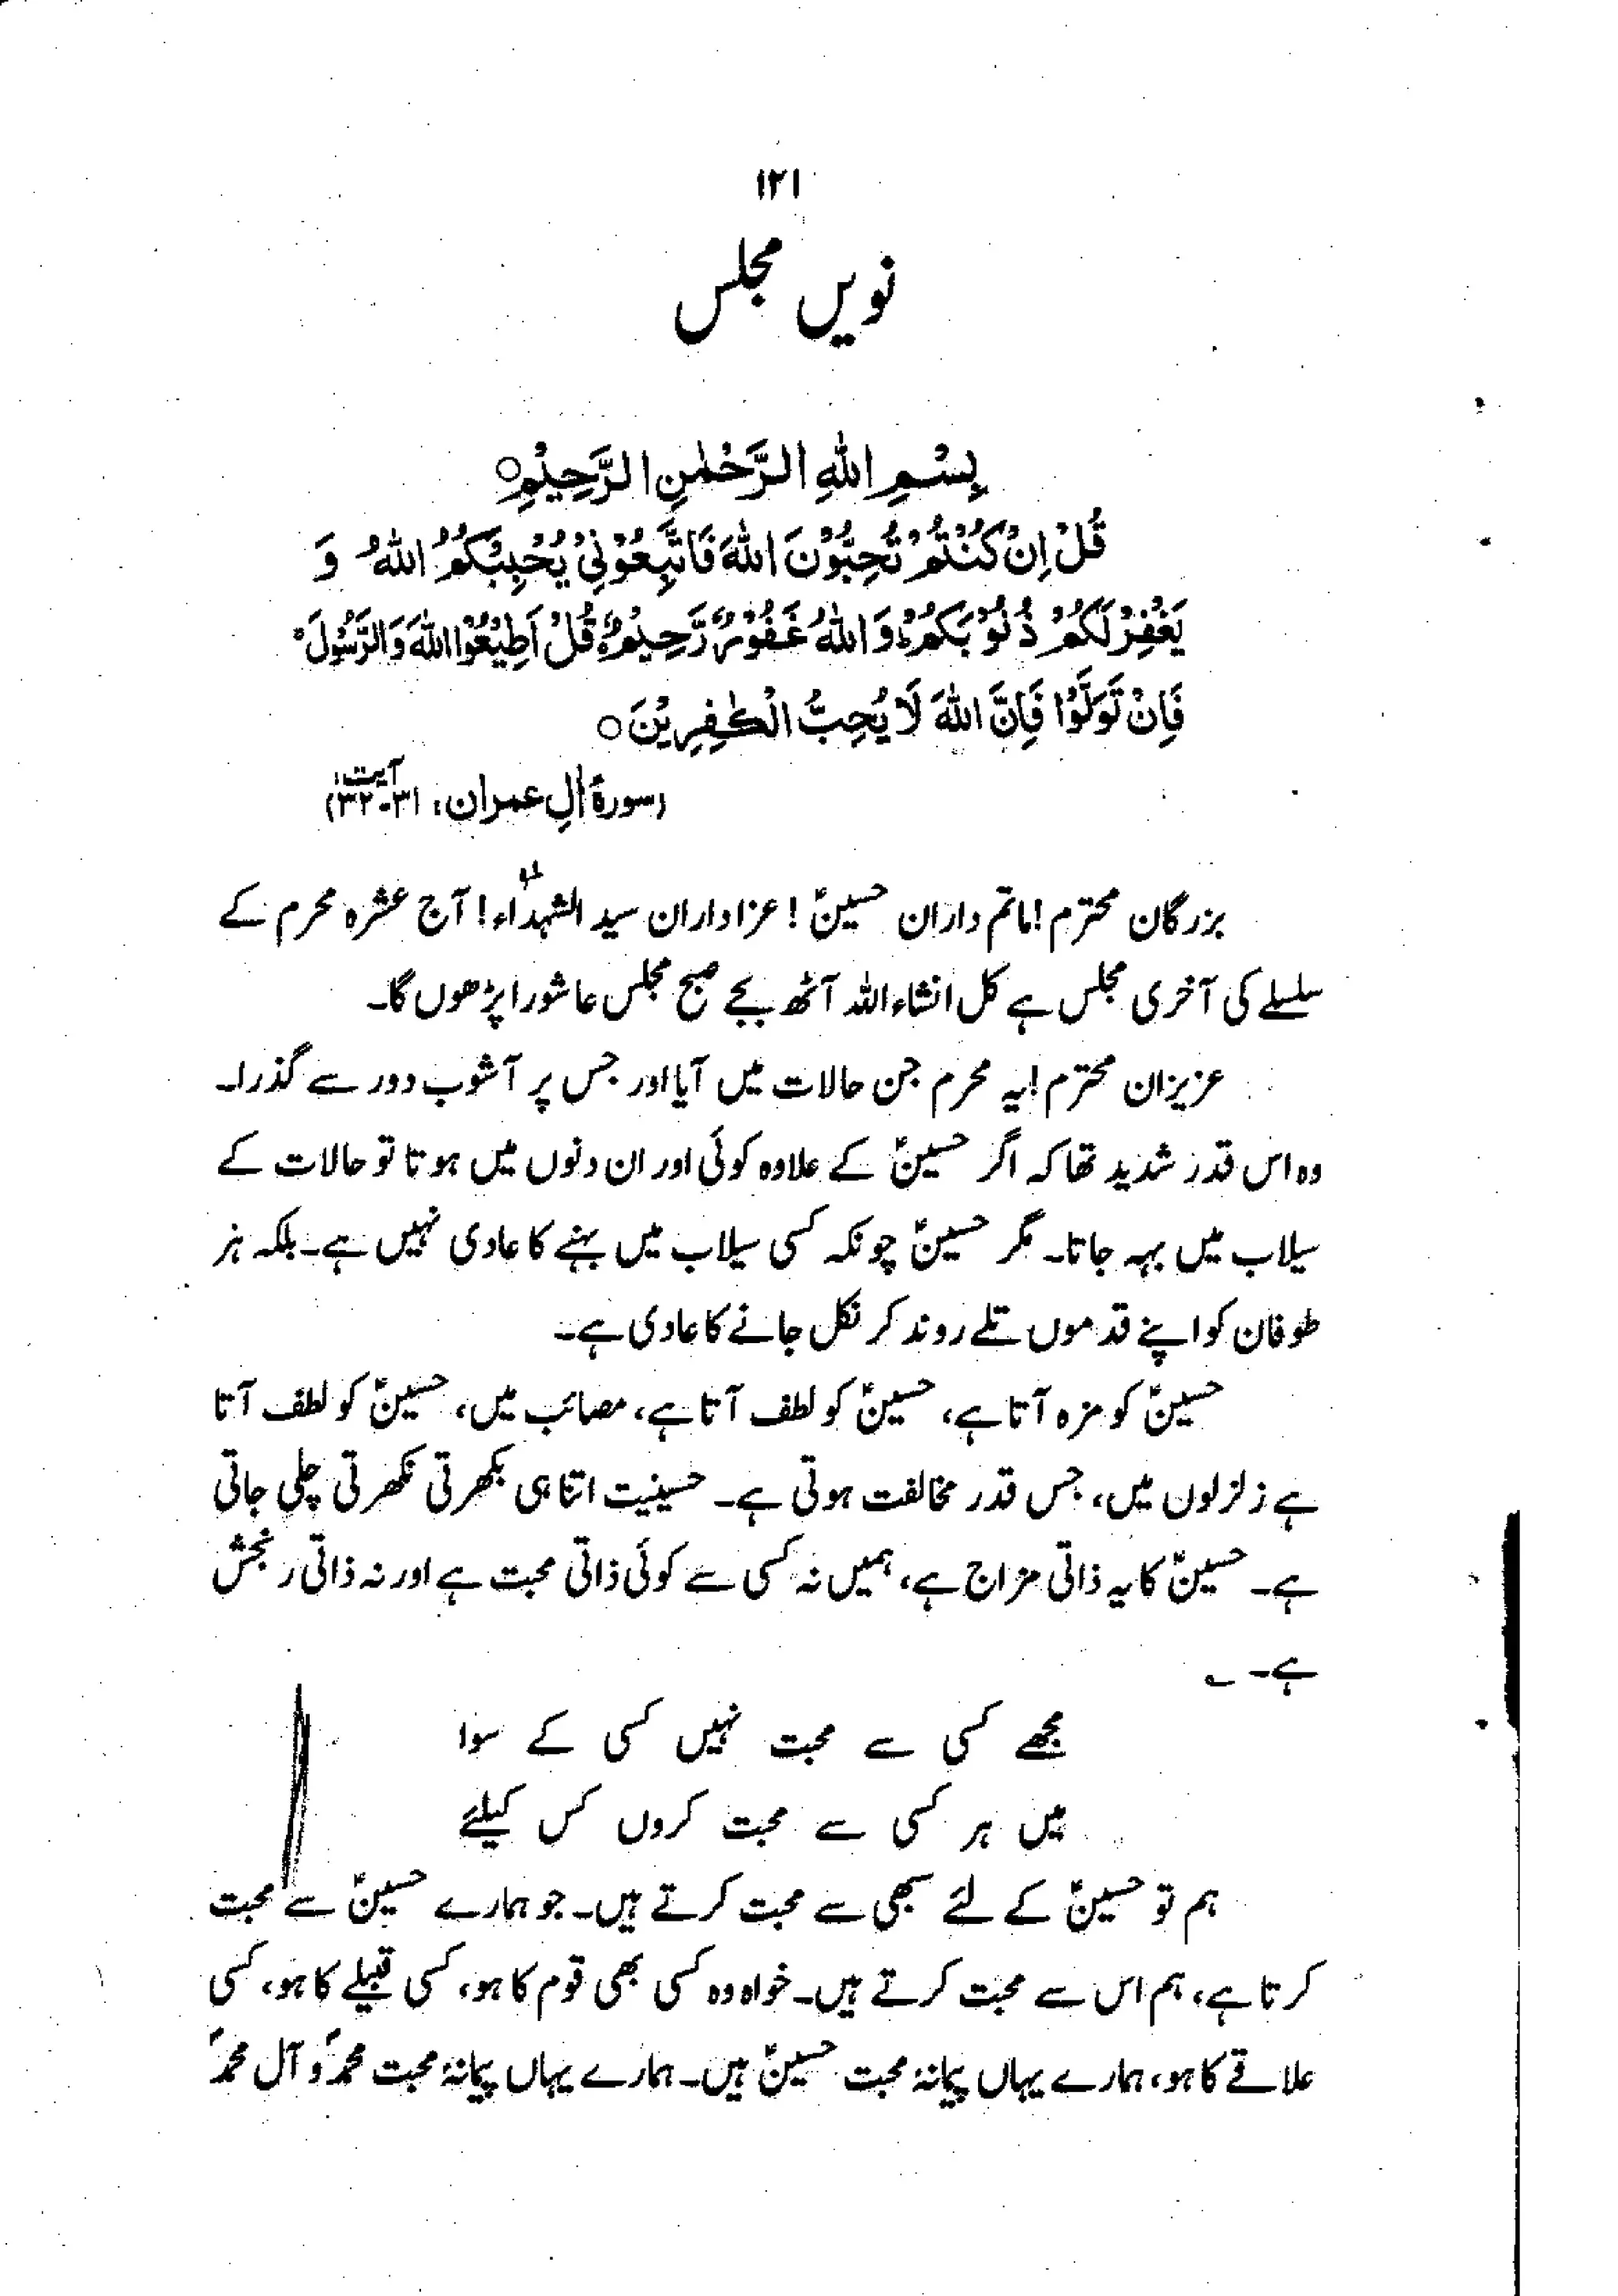 ۱۲۱
نویں مجلس
بِسْمِ اللهِ الرَّحْمٰنِ الرَّحِيْمِ○
قُلْ اِنْ كُنْتُمْ تُحِبُّوْنَ اللهَ فَاتَّبِعُوْنِيْ يُحْبِبْكُمُ اللهُ وَ
يَغْفِرْ لَكُمْ ذُنُوْبَكُمْ ؕ وَاللهُ غَفُوْرٌ رَّحِيْمٌ ○ قُلْ اَطِيْعُوا اللهَ وَالرَّسُوْلَ ۚ
فَاِنْ تَوَلَّوْا فَاِنَّ اللهَ لَا يُحِبُّ الْكٰفِرِيْنَ ○
(سورۂ اٰلِ عمران، آیت: ۳۱-۳۲)
بزرگان محترم! ماتم داران حسینؑ! عزاداران سید الشہداء! آج عشرہ محرم کے
سلسلے کی آخری مجلس ہے کل انشاء اللہ آٹھ بجے صبح مجلس عاشورا پڑھوں گا۔
عزیزان محترم! یہ محرم جن حالات میں آیا اور جس پر آشوب دور سے گذرا۔
وہ اس قدر شدید تھا کہ اگر حسینؑ کے علاوہ کوئی اور ان دنوں میں ہوتا تو حالات کے
سیلاب میں بہہ جاتا۔ مگر حسینؑ چونکہ کسی سیلاب میں بہنے کا عادی نہیں ہے۔ بلکہ ہر
طوفان کو اپنے قدموں تلے روند کر نکل جانے کا عادی ہے۔
حسینؑ کو مزہ آتا ہے، حسینؑ کو لطف آتا ہے، مصائب میں، حسینؑ کو لطف آتا
ہے زلزلوں میں، جس قدر مخالفت ہوتی ہے۔ حسینیت اتنا ہی بکھرتی نکھرتی چلی جاتی
ہے۔ حسینؑ کا یہ ذاتی مزاج ہے، ہمیں نہ کسی سے کوئی ذاتی محبت ہے اور نہ ذاتی رنجش
ہے۔ ؎
مجھے کسی سے محبت نہیں کسی کے سوا
میں ہر کسی سے محبت کروں کس کیلئے
ہم تو حسینؑ کے لئے سبھی سے محبت کرتے ہیں۔ جو ہمارے حسینؑ سے محبت
کرتا ہے، ہم اس سے محبت کرتے ہیں۔ خواہ وہ کسی بھی قوم کا ہو، کسی قبیلے کا ہو، کسی
علاقے کا ہو، ہمارے یہاں پیمانۂ محبت حسینؑ ہیں۔ ہمارے یہاں پیمانۂ محبت محمدؐ و آل محمدؐ